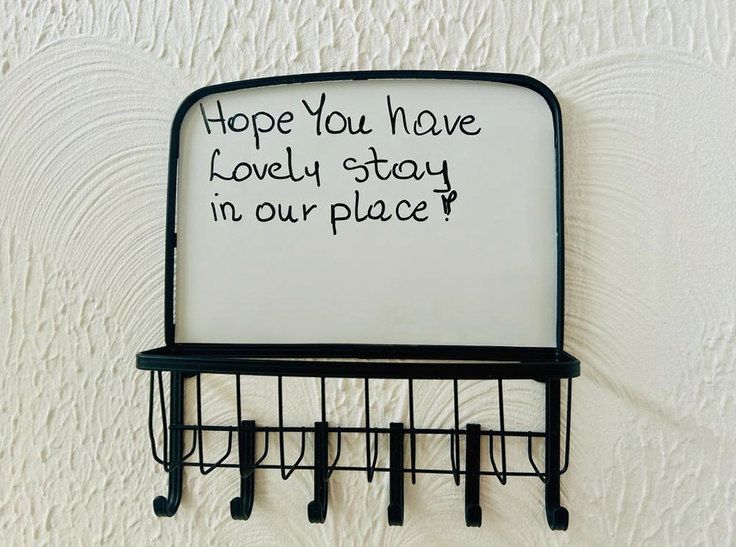 Hope You have
Lovely stay
in our place!